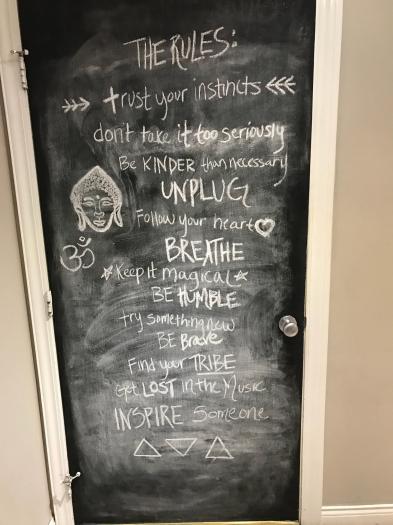 THE RULES:
trust your instincts
don't take it too seriously
Be KINDER than necessary
UNPLUG
Follow your heart
BREATHE
ॐ
Keep it magical
BE HUMBLE
try something new
BE Brave
Find your TRIBE
Get LOST in the Music
INSPIRE Someone